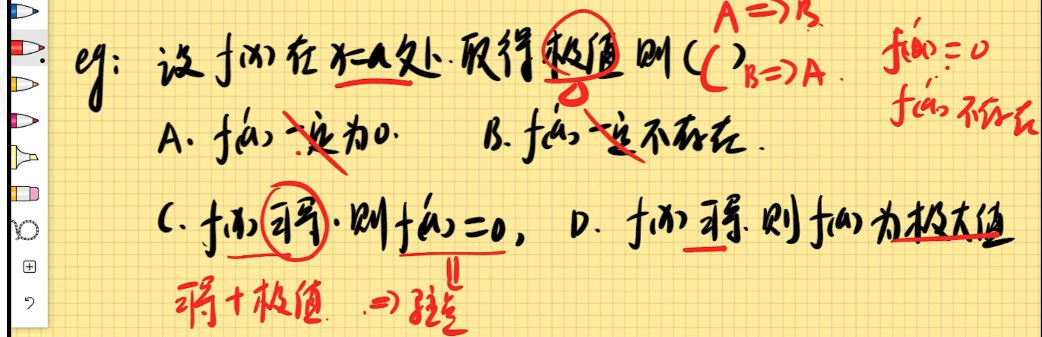 A => B
eg: 设 f(x) 在 x=a 处 取得 极值 则 ( ) B => A. f'(a) = 0
f'(a) 不存在
A. f'(a) 一定为0. B. f'(a) 一定不存在.
C. f(x) 可导. 则 f'(a) = 0, D. f(x) 可导. 则 f(a) 为极大值
可导 + 极值 => 驻点